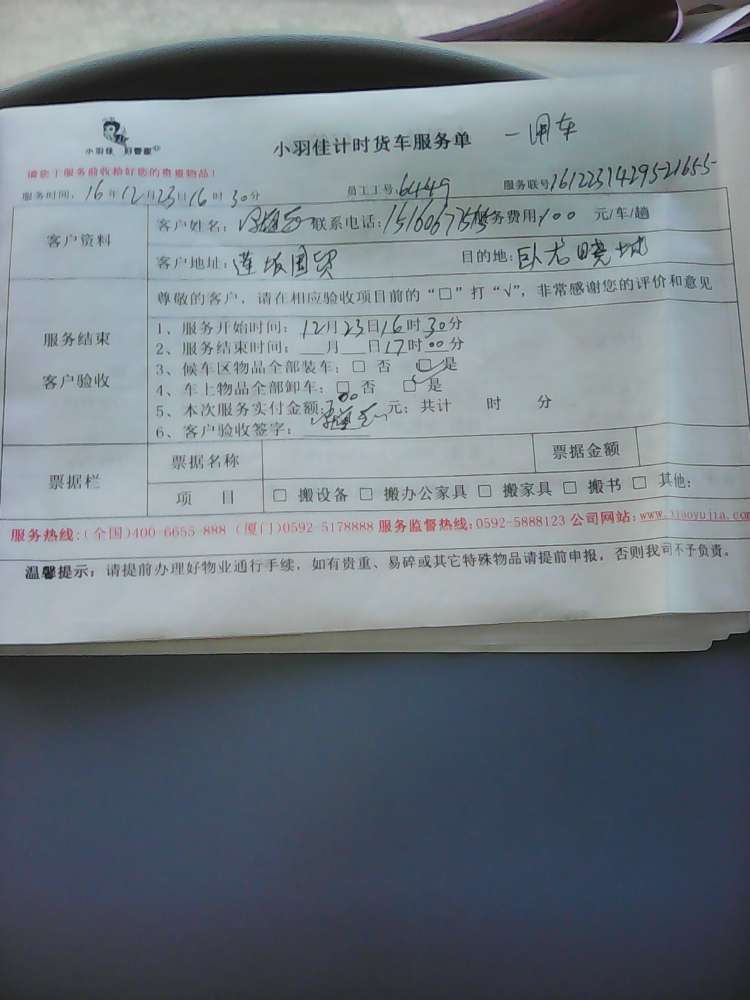 小羽佳 好管家
小羽佳计时货车服务单 一调车
请您！服务前收拾好您的贵重物品！
服务时间：16年12月23日16时30分 员工工号：6449 服务联号16122314295-21655
客户资料 客户姓名： 联系电话：151606 服务费用100 元/车/趟
客户地址：莲坂国贸 目的地：卧龙晓城
服务结束 客户验收
尊敬的客户，请在相应验收项目前的“□”打“√”，非常感谢您的评价和意见
1、服务开始时间：12月23日16时30分
2、服务结束时间：__月__日17时00分
3、候车区物品全部装车：□ 否 □ 是
4、车上物品全部卸车：□ 否 □ 是
5、本次服务实付金额 元；共计 时 分
6、客户验收签字：
票据栏 票据名称 票据金额
项 目 □ 搬设备 □ 搬办公家具 □ 搬家具 □ 搬书 □ 其他：
服务热线：（全国）400-6655-888（厦门）0592-5178888 服务监督热线：0592-5888123 公司网站：www.xiaoyujia.com
温馨提示：请提前办理好物业通行手续，如有贵重、易碎或其它特殊物品请提前申报，否则我司不予负责。